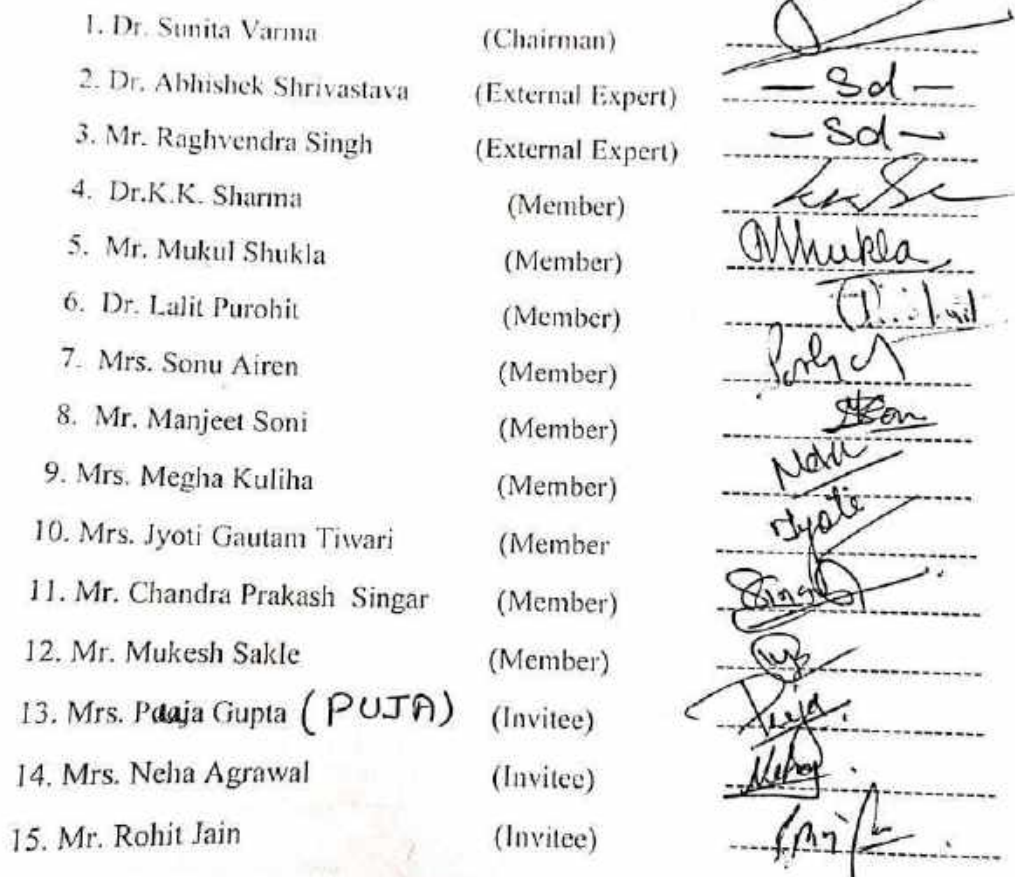 1. Dr. Sunita Varma (Chairman)
2. Dr. Abhishek Shrivastava (External Expert) — Sd —
3. Mr. Raghvendra Singh (External Expert) — Sd —
4. Dr.K.K. Sharma (Member)
5. Mr. Mukul Shukla (Member) MShukla
6. Dr. Lalit Purohit (Member)
7. Mrs. Sonu Airen (Member)
8. Mr. Manjeet Soni (Member)
9. Mrs. Megha Kuliha (Member)
10. Mrs. Jyoti Gautam Tiwari (Member Jyoti
11. Mr. Chandra Prakash Singar (Member)
12. Mr. Mukesh Sakle (Member)
13. Mrs. Gupta (PUJA) (Invitee)
14. Mrs. Neha Agrawal (Invitee) Neha
15. Mr. Rohit Jain (Invitee)